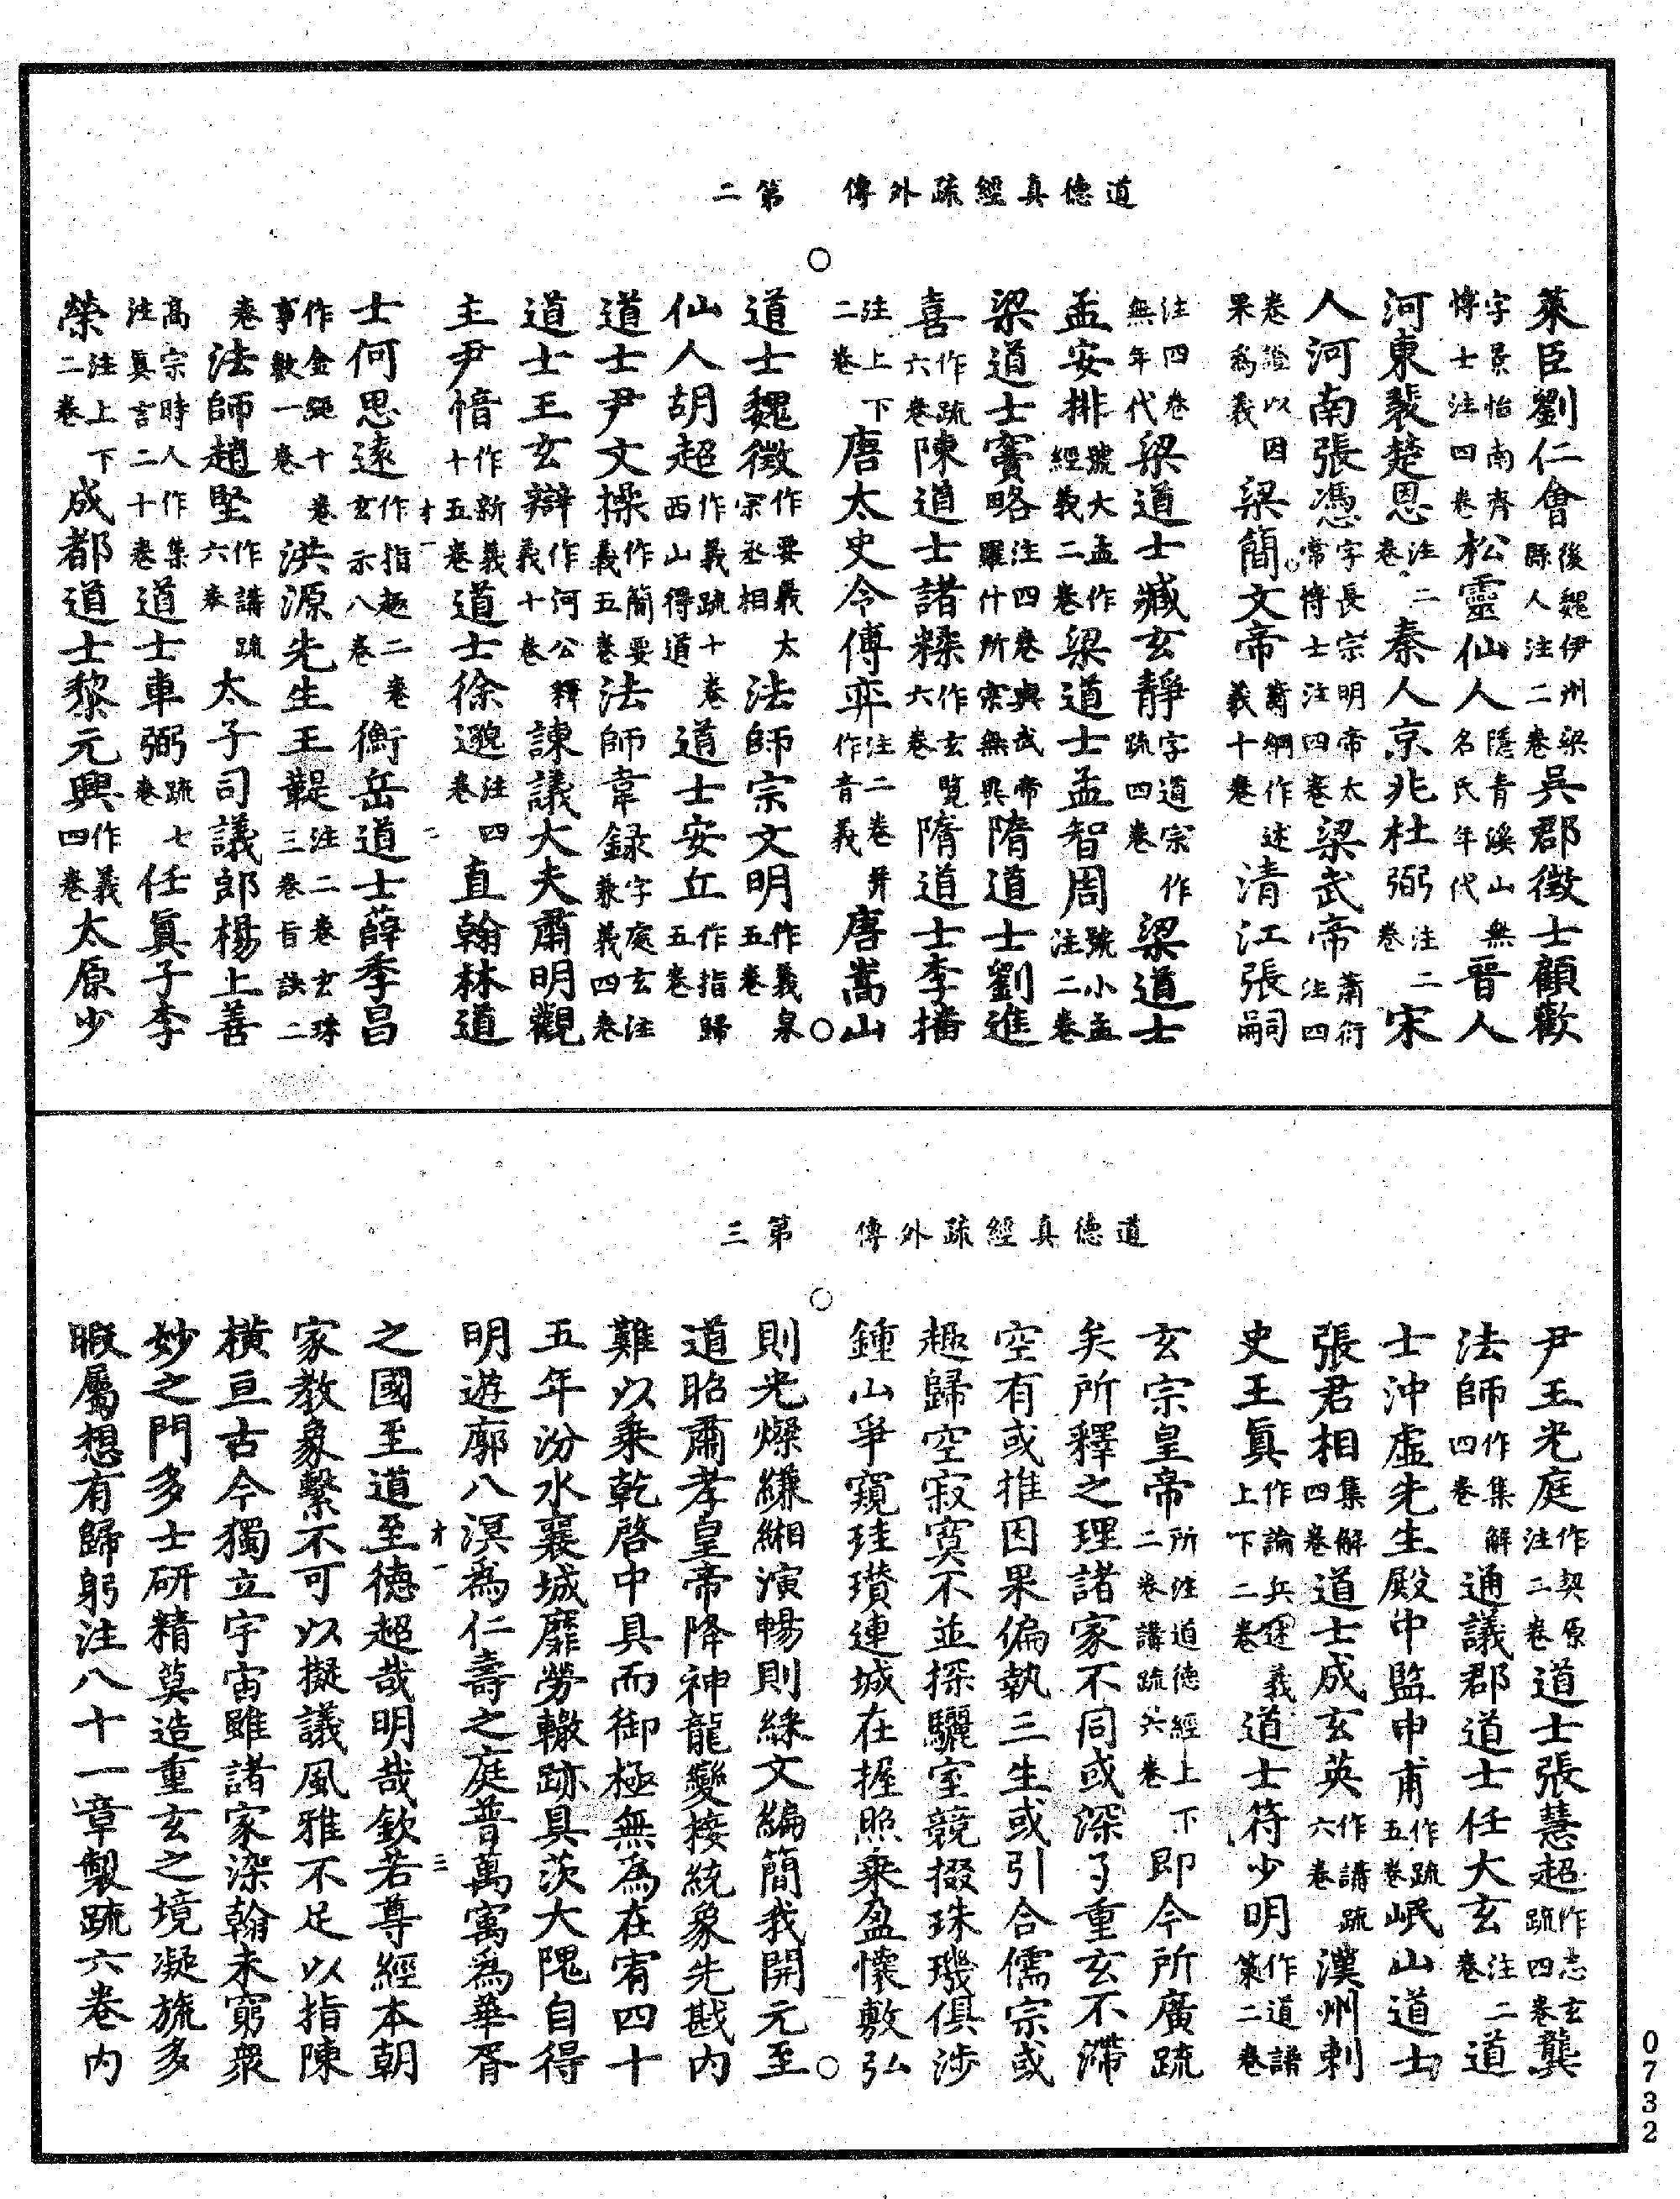 道德真經疏外傳　第二
萊臣劉仁會後魏伊州梁縣人注二卷吳郡徵士顧歡
字景怡南齊博士注四卷松靈仙人隱青溪山無名氏年代晉人
河東裴楚恩注二卷秦人京兆杜弼注二卷宋
人河南張憑字長宗明帝太常博士注四卷梁武帝蕭衍注四
卷證以因果為義梁簡文帝蕭綱作述義十卷清江張嗣
注四卷無年代梁道士臧玄靜字道宗作疏四卷梁道士
孟安排號大孟作經義二卷梁道士孟智周號小孟注二卷
梁道士竇略注四卷與武帝羅什所宗無異隋道士劉進
喜作疏六卷陳道士諸糅作玄覽六卷隋道士李播
注上下二卷唐太史令傅弈注二卷并作音義唐嵩山
道士魏徵作要義太宗丞相法師宗文明作義泉五卷
仙人胡超作義疏十卷西山得道道士安丘作指歸五卷
道士尹文操作簡要義五卷法師韋録字處玄注兼義四卷
道士王玄辯作河公釋義十卷諫議大夫肅明觀
主尹愔作新義十五卷道士徐邈注四卷直翰林道
士何思遠作指趣二卷玄示八卷衡岳道士薛季昌
作金繩十卷事數一卷洪源先生王鞮注二卷玄珠三卷旨訣二
卷法師趙堅作講疏六卷太子司議郎楊上善
高宗時人作集注真言二十卷道士車弼疏七卷任真子李
榮注上下二卷成都道士黎元興作義四卷太原少
道德真經疏外傳　第三
尹王光庭作契原注二卷道士張慧超作志玄疏四卷龔
法師作集解四卷通議郡道士任大玄注二卷道
士沖虛先生殿中監申甫作疏五卷岷山道士
張君相集解四卷道士成玄英作講疏六卷漢州刺
史王真作論兵述義上下二卷道士符少明作道譜策二卷
玄宗皇帝所注道德經上下二卷講疏六卷即今所廣疏
矣所釋之理諸家不同或深了重玄不滯
空有或推因果偏執三生或引合儒宗或
趣歸空寂寞不並探驪室競掇珠璣俱涉
鍾山爭窺珪瓚連城在握照乘盈懷敷弘
則光燦縑緗演暢則綠文編簡我開元至
道昭肅孝皇帝降神龍變接統象先戡內
難以乘乾啓中具而御極無為在宥四十
五年汾水襄城靡勞轍跡具茨大隗自得
明遊廓八溟為仁壽之庭普萬寓為華胥
之國至道至德超哉明哉欽若尊經本朝
家教象繫不可以擬議風雅不足以指陳
橫亘古今獨立宇宙雖諸家染翰未窮衆
妙之門多士研精莫造重玄之境凝旒多
暇屬想有歸躬注八十一章製疏六卷內
0732